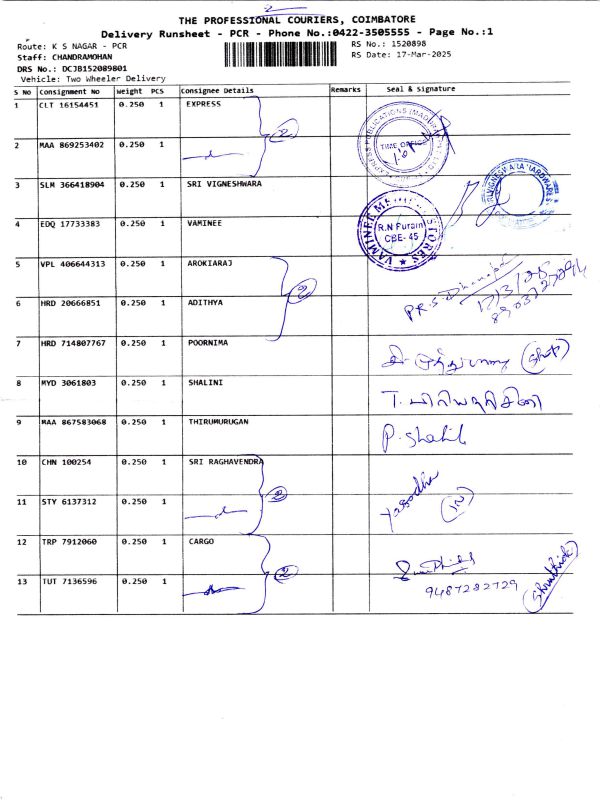 2
THE PROFESSIONAL COURIERS, COIMBATORE
Delivery Runsheet - PCR - Phone No.:0422-3505555 - Page No.:1
Route: K S NAGAR - PCR
RS No.: 1520898
Staff: CHANDRAMOHAN
RS Date: 17-Mar-2025
DRS No.: DCJB152089801
Vehicle: Two Wheeler Delivery
S No Consignment No Weight PCS Consignee Details Remarks Seal & Signature
1 CLT 16154451 0.250 1 EXPRESS
2 MAA 869253402 0.250 1
2
TIME OFFICE
3 SLM 366418904 0.250 1 SRI VIGNESHWARA
4 EDQ 17733383 0.250 1 VAMINEE
VAMINEE MEDICAL STORES
R.N Puram
CBE- 45
5 VPL 406644313 0.250 1 AROKIARAJ
2
6 HRD 20666851 0.250 1 ADITHYA
17/3/25
8903727894
7 HRD 714807767 0.250 1 POORNIMA
8 MYD 3061803 0.250 1 SHALINI
9 MAA 867583068 0.250 1 THIRUMURUGAN
P. Shahil
10 CHN 100254 0.250 1 SRI RAGHAVENDRA
Yasodha
2
11 STY 6137312 0.250 1
12 TRP 7912060 0.250 1 CARGO
2
13 TUT 7136596 0.250 1
9487282729